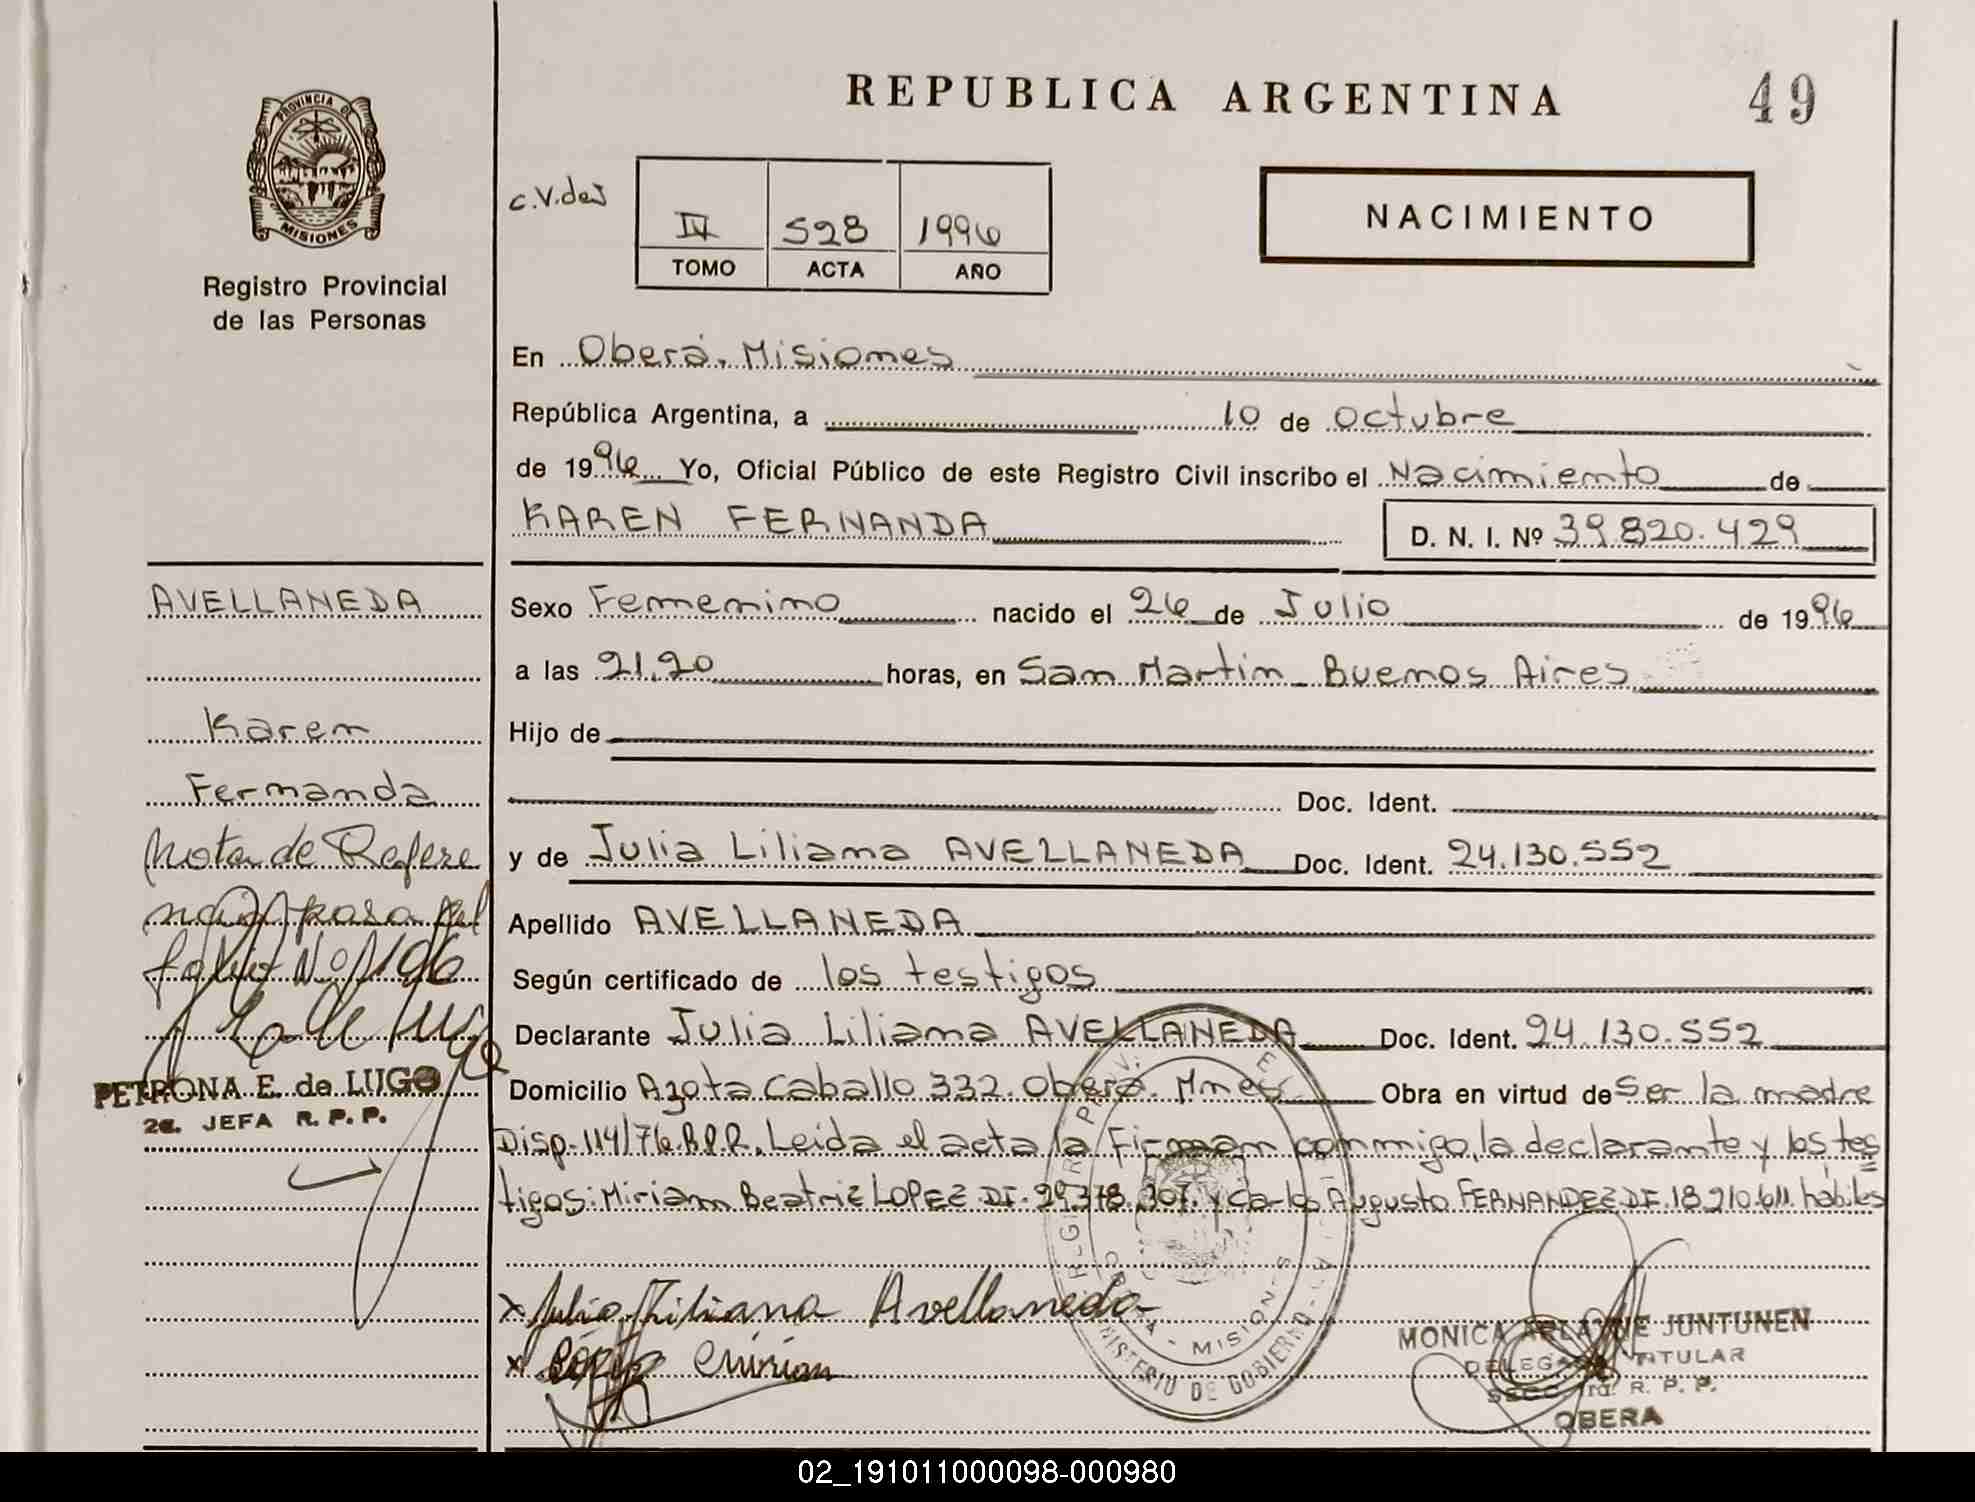 REPUBLICA ARGENTINA
49
PROVINCIA DE
MISIONES
Registro Provincial
de las Personas
c.V.des
IV 528 1996
TOMO ACTA AÑO
NACIMIENTO
En Oberá, Misiones
República Argentina, a 10 de octubre
de 1996 Yo, Oficial Público de este Registro Civil inscribo el Nacimiento de
KAREN FERNANDA
D. N. I. Nº 39.820.429
AVELLANEDA
Karen
Fernanda
Nota de Refere
ncia pasa al
folio Nº 196
PETRONA E. de LUGO
2a. JEFA R. P. P.
Sexo Femenino nacido el 26 de Julio de 1996
a las 21,20 horas, en San Martin - Buenos Aires
Hijo de
Doc. Ident.
y de Julia Liliana AVELLANEDA Doc. Ident. 24.130.552
Apellido AVELLANEDA
Según certificado de los testigos
Declarante Julia Liliana AVELLANEDA Doc. Ident. 24.130.552
Domicilio Azota Caballo 332. Oberá. Mnes Obra en virtud de Ser la madre
Disp. 114/76.R.P.P. Leida el acta la Firman conmigo, la declarante y los tes
tigos: Miriam Beatriz LOPEZ DI. 29.378.307. y Carlos Augusto FERNANDEZ DI. 18.210.611. hábiles
x Julia Liliana Avellaneda
x López Miriam
MINISTERIO DE GOBIERNO
OBERA - MISIONES
MONICA ARLA DE JUNTUNEN
DELEGADA TITULAR
SECC. 1ra. R. P. P.
OBERA
02_191011000098-000980